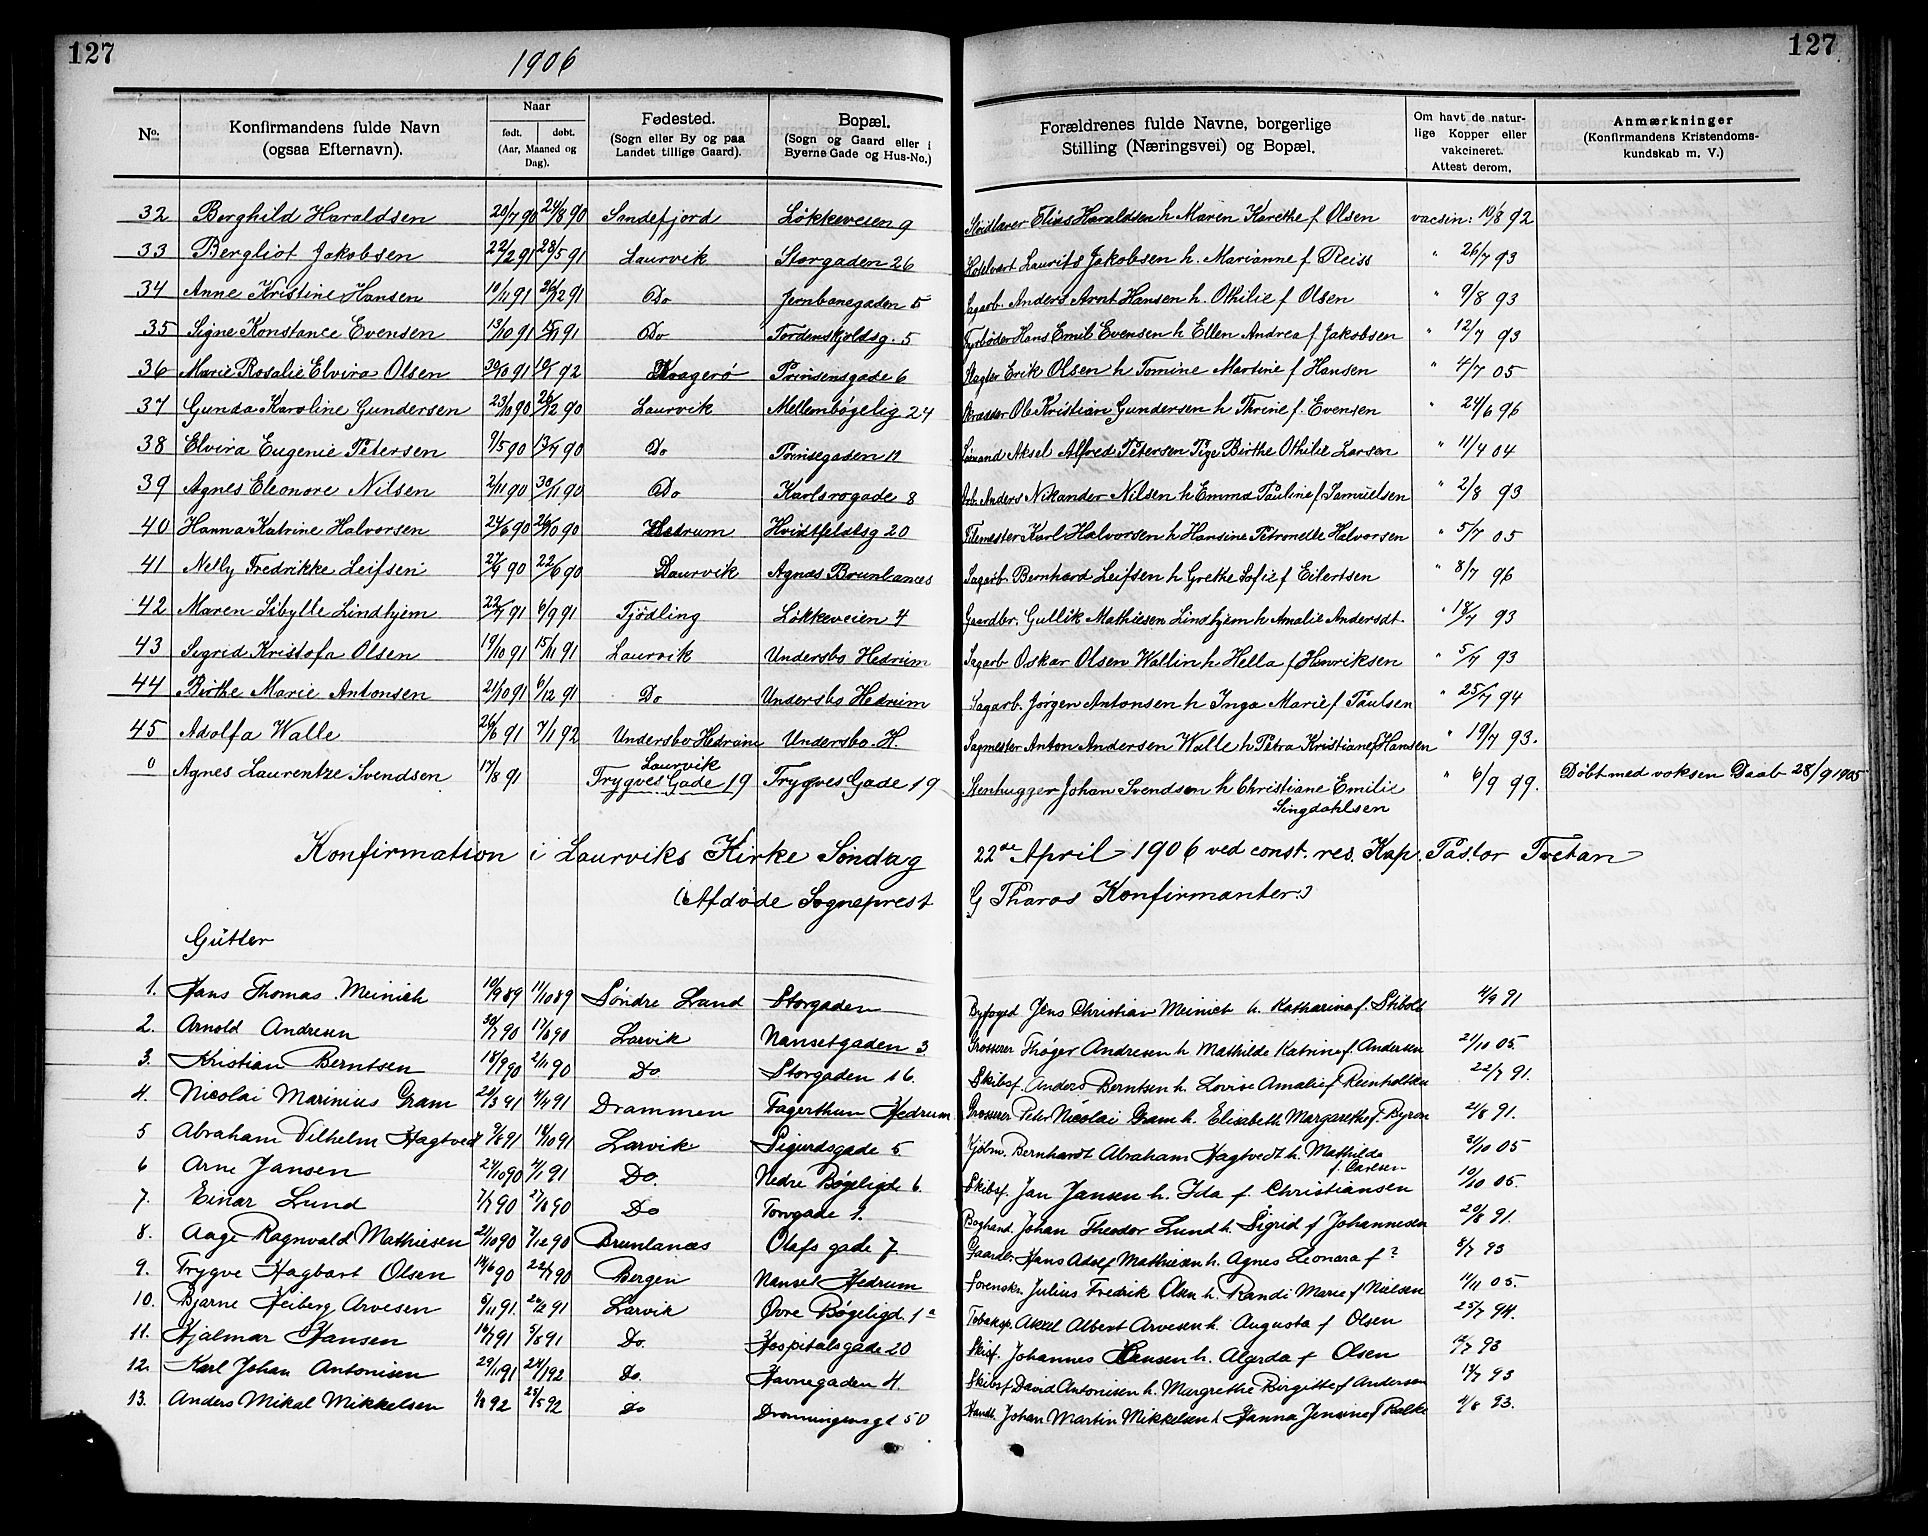 127
127
1906
No.
Konfirmandens fulde Navn (ogsaa Efternavn).
Naar
født. døbt.
(Aar, Maaned og Dag).
Fødested.
(Sogn eller By og paa Landet tillige Gaard).
Bopæl.
(Sogn og Gaard eller i Byerne Gade og Hus-No.)
Forældrenes fulde Navne, borgerlige Stilling (Næringsvei) og Bopæl.
Om havt de naturlige Kopper eller vakcineret. Attest derom.
Anmærkninger
(Konfirmandens Kristendomskundskab m. V.)
32 Borghild Haraldsen 20/7 90 24/8 90 Sandefjord Løkkeveien 9 Elias Haraldsen h. Maren Karethe f Olsen vacsin: 10/8 92
33 Bergliot Jakobsen 22/2 91 28/5 91 Laurvik Storgaden 26 Laurits Jakobsen h. Marianne f Reiss " 26/7 93
34 Anne Kristine Hansen 10/11 91 26/12 91 Do Jernbanegaden 5 Sagarb. Anders Arnt Hansen h. Othilie f Olsen " 9/8 93
35 Signe Konstance Evensen 13/10 91 91 Do Tordenskjoldsg. 5 Fyrbøder Hans Emil Evensen h Ellen Andrea f Jakobsen " 12/7 93
36 Marie Rosalie Elvira Olsen 30/10 91 92 Kragerø Prinsensgade 6 Slagter Erik Olsen h Tomine Martine f Hansen " 4/7 05
37 Gunda Karoline Gundersen 23/10 90 26/12 90 Laurvik Mellembøgelig 24 Ole Kristian Gundersen h Thrine f. Evensen " 24/6 96
38 Elvira Eugenie Petersen 9/5 90 13/7 90 Do Prinsegaden 11 Sømand Aksel Alfred Petersen Pige Birthe Othilie Larsen " 11/4 04
39 Agnes Eleonore Nilsen 2/11 90 30/11 90 Do Karlsrogade 8 Arb. Anders Nikander Nilsen h Emma Pauline f Samuelsen " 2/8 93
40 Hanna Katrine Halvorsen 24/6 90 26/10 90 Hedrum Hvidtfeldtsg 20 Filemester Karl Halvorsen h Hansine Petronelle Halvorsen " 5/7 05
41 Nelly Fredrikke Leifsen 27/4 90 22/6 90 Laurvik Agnæs Brunlanæs Sagarb. Bernhard Leifsen h Grethe Sofie f Eilertsen " 8/7 96
42 Maren Sibylle Lindhjem 22/7 91 6/9 91 Tjødling Løkkeveien 4 Gaardbr. Gullik Mathiesen Lindhjem h Amalie Andersdt. " 18/7 93
43 Sigrid Kristofa Olsen 19/10 91 15/11 91 Laurvik Undersbo Hedrum Sagarb Oskar Olsen Wallin h Hella f Henriksen " 5/7 93
44 Birthe Marie Antonsen 21/10 91 6/12 91 Do Undersbo Hedrum Sagarb. Jørgen Antonsen h Inga Marie f Paulsen " 25/7 94
45 Adolfa Walle 26/6 91 7/1 92 Undersbo Hedrum Undersbo. H. Sagmester Anton Andersen Walle h Petra Kristiane f Hansen " 19/7 93.
0 Agnes Laurentze Svendsen 17/8 91 Laurvik Trygves Gade 19 Trygves Gade 19 Stenhugger Johan Svendsen h Christiane Emilie " 6/9 99. Døbt med voksen Daab 28/9 1905
Singdahlsen
Konfirmation i Laurviks Kirke Søndag 22de April 1906 ved const. res. Kap. Pastor Tvetan
(Afdøde Sogneprest G Tharos Konfirmanter:)
Gutter
1. Hans Thomas Meinich 10/9 89 11/10 89 Søndre Land Storgaden Byfoged Jens Christian Meinich h. Katharina f. Stibolt 4/9 91
2. Arnold Andresen 30/7 90 17/8 90 Larvik Nansetgaden 3 Grosserer Thøger Andresen h Mathilde Katrine f. Andersen 21/10 05.
3. Kristian Berntsen 18/9 90 2/11 90 Do Storgaden 16. Skibsf. Anders Berntsen h. Lovise Amalie f Reinholtsen 22/7 91.
4. Nicolai Marinius Gram 20/3 91 91 Drammen Fagerthun Hedrum Grosserer Peter Nicolai Gram h. Elisabeth Margarethe f. Byron 21/8 91.
5 Abraham Vilhelm Hagtvedt 9/8 91 18/10 91 Larvik Sigurdsgade 5 Kjøbm. Bernhardt Abraham Hagtvedt h. Mathilde f. Carlsen 31/10 05
6 Arne Jansen 24/10 90 4/1 91 Do. Nedre Bøgeligd. 6 Skibsf. Jan Jansen h. Ida f. Christiansen 10/10 05.
7. Einar Lund 7/7 90 27/8 90 Do Torvgade 1. Boghand. Johan Theodor Lund h. Sigrid f Johannesen 20/8 91.
8. Aage Ragnvald Mathiesen 21/10 90 7/12 90 Brunlanæs Olafs gade 7. Gaardbr. Hans Adolf Mathiesen h. Agnes Leonara f ? 8/7 93
9. Trygve Hagbart Olsen 14/6 90 22/7 90 Bergen Nanset Hedrum Sorenskr. Julius Fredrik Olsen h. Randi Marie f Nielsen 11/11 05.
10. Bjarne Heiberg Arvesen 5/11 91. 91 Larvik Øvre Bøgeligd. 1a Tobaksp. Axel Albert Arvesen h. Augusta f Olsen 25/7 94.
11. Hjalmar Hansen 16/7 91 5/8 91 Do. Hospitalsgade 20 Skibsf. Johannes Hansen h. Algerda f Olsen 93
12. Karl Johan Antonisen 29/11 91 24/1 92 Do. Havnegaden 4. Skibsf David Antonisen h. Margrethe Birgitte f Andersen 13/7 93
13. Anders Mikal Mikkelsen 92 25/5 92 Do Dronningensgd 50 Handl. Johan Martin Mikkelsen h Hanna Jensine f Balke 4/8 93.